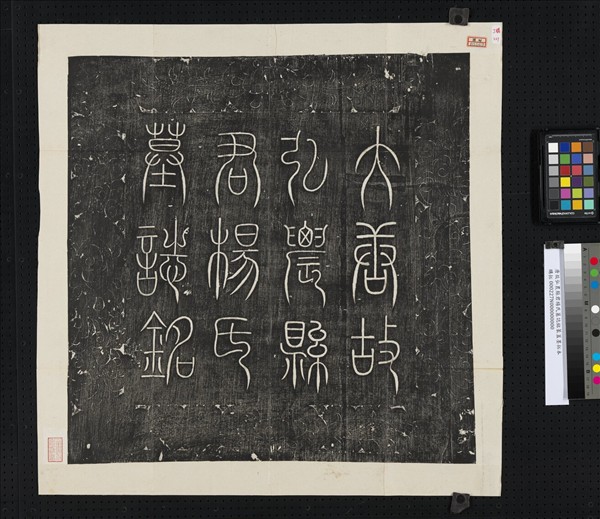 大唐故
弘農縣
君楊氏
墓誌銘